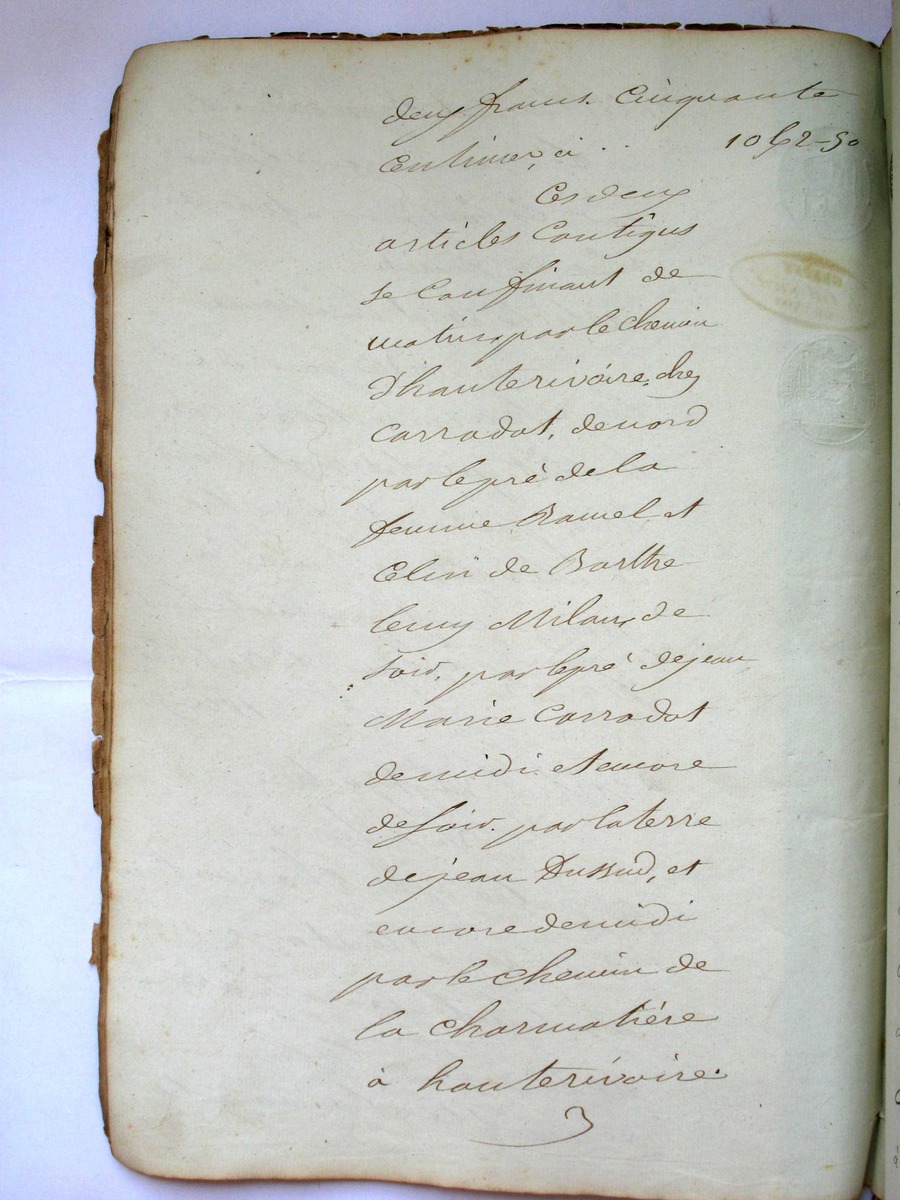 deux francs cinquante
centimes, ci . . 1062-50
Ces deux
articles contigus
se confinant de
matin, par le chemin
d'hauterivoire, chez
Carradot, de nord
par le pré de la
femme Ramel et
celui de Barthe
lemy Milan, de
soir, par le pré de jean
Marie Carradot
de midi et encore
de soir par la terre
de jean Dussud, et
encore de midi
par le chemin de
la charmatière
à hauterivoire.